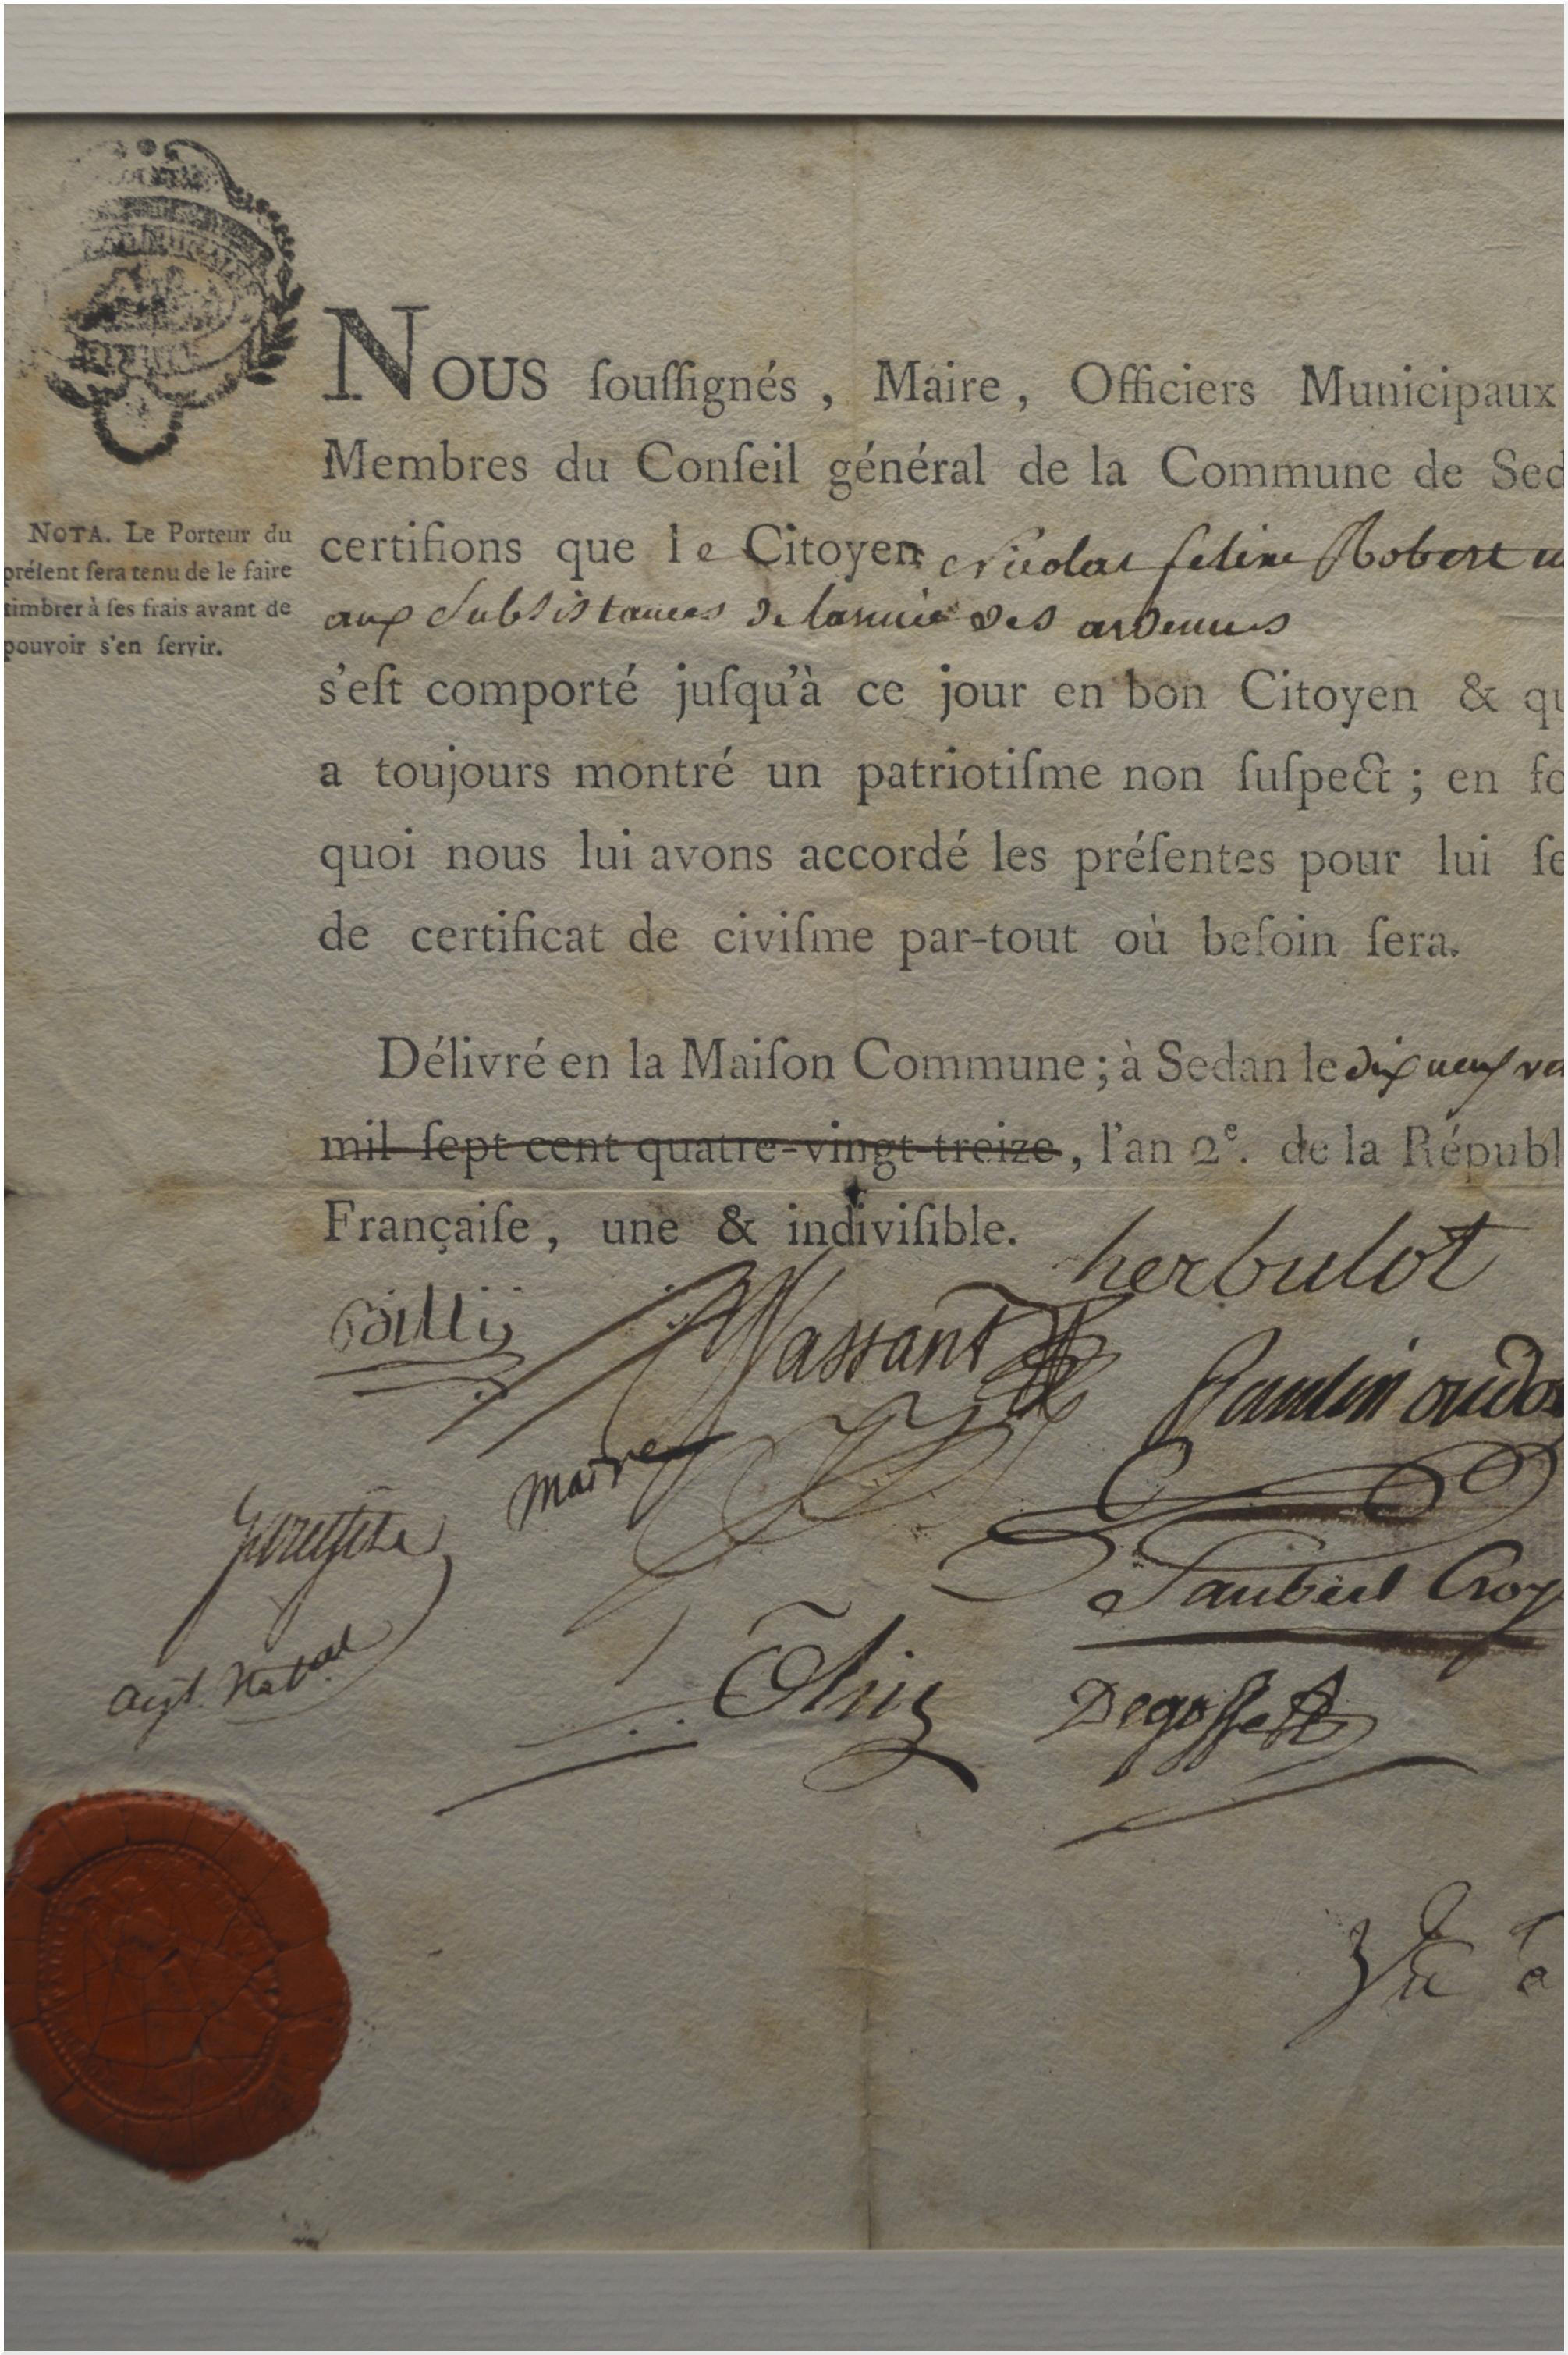 Nous ſouſſignés, Maire, Officiers Municipaux
Membres du Conſeil général de la Commune de Sed
certifions que le Citoyen Nicolas feline Robert
aux Subsistances de larmée des ardennes
s'eſt comporté juſqu'à ce jour en bon Citoyen & qu
a toujours montré un patriotiſme non ſuſpect ; en fo
quoi nous lui avons accordé les préſentes pour lui ſe
de certificat de civiſme par-tout où beſoin ſera.
NOTA. Le Porteur du
préſent ſera tenu de le faire
timbrer à ſes frais avant de
pouvoir s'en ſervir.
Délivré en la Maiſon Commune ; à Sedan le dix neuf
mil ſept cent quatre-vingt treize, l'an 2e. de la Républ
Françaiſe, une & indiviſible.
herbulot
Wassant
maire
agt. Natal
Vu a